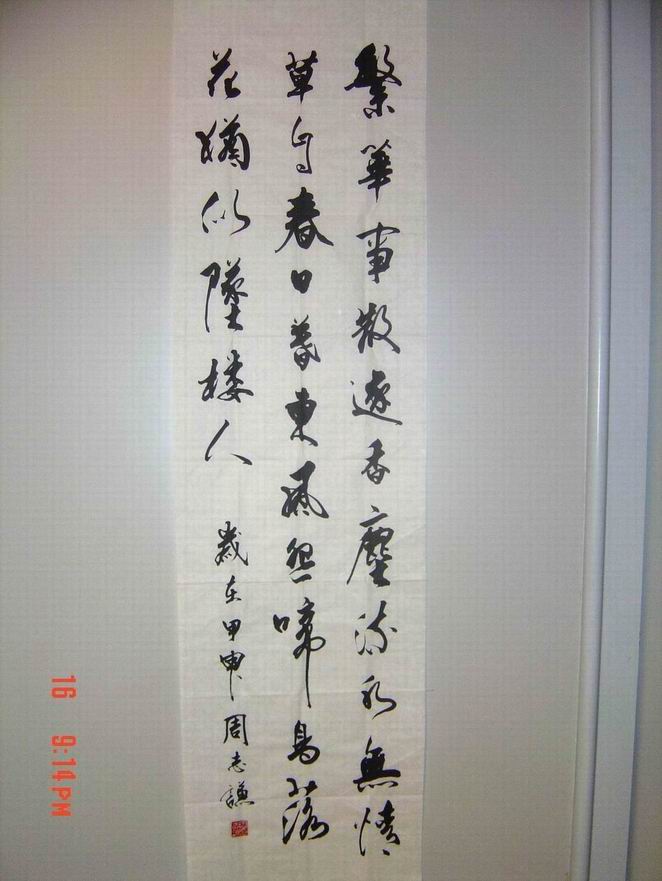 繁華事散逐香塵流水無情
草自春日暮東風怨啼鳥落
花猶似墜楼人
歲在甲申周志謙
16 9:14PM